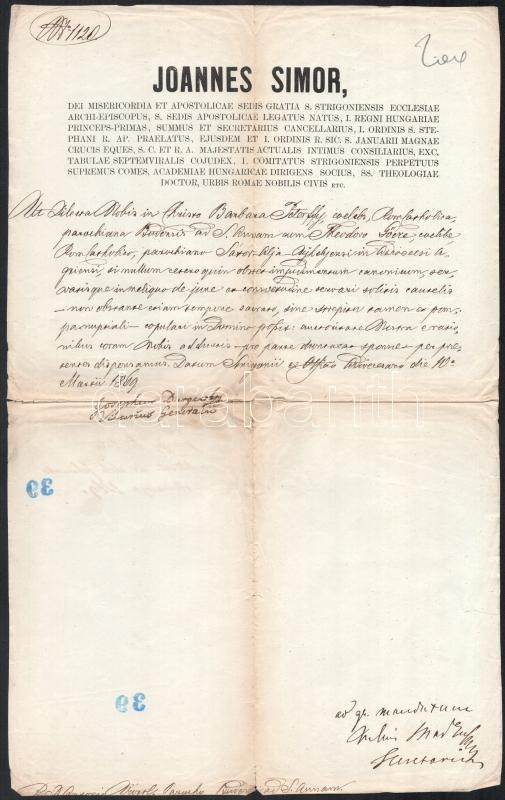 1120
JOANNES SIMOR,
DEI MISERICORDIA ET APOSTOLICAE SEDIS GRATIA S. STRIGONIENSIS ECCLESIAE
ARCHI-EPISCOPUS, S. SEDIS APOSTOLICAE LEGATUS NATUS, I. REGNI HUNGARIAE
PRINCEPS-PRIMAS, SUMMUS ET SECRETARIUS CANCELLARIUS, I. ORDINIS S. STE-
PHANI R. AP. PRAELATUS, EJUSDEM ET I. ORDINIS R. SIC. S. JANUARII MAGNAE
CRUCIS EQUES, S. C. ET R. A. MAJESTATIS ACTUALIS INTIMUS CONSILIARIUS, EXC.
TABULAE SEPTEMVIRALIS COJUDEX, I. COMITATUS STRIGONIENSIS PERPETUUS
SUPREMUS COMES, ACADEMIAE HUNGARICAE DIRIGENS SOCIUS, SS. THEOLOGIAE
DOCTOR, URBIS ROMAE NOBILIS CIVIS ETC.
Ut Dilecta Nobis in Christo Barbara caelebs, Rom. catholica,
parochiana ad S. Annam cum Theodoro caelebe
Rom. catholico, parochiano in Dioecesi A-
griensi, si nullum caeteroquin obstet impedimentum canonicum, ser-
vatisque in reliquo de jure et consuetudine servari solitis cautelis
– non obstante etiam tempore sacrato, sine strepitu tamen et pom-
pa nuptiali – copulari in Domino possit: auctoritate Nostra e ratio-
nibus coram Nobis adductis – pro parte duntaxat sponsae – per prae-
sentes dispensamus. Datum Strigonii ex Officio Dioecesano die 10a
Martii 1869
Vicarius Generalis
39
39
ad gr. mandatum
ad S. Annam.
darabanth